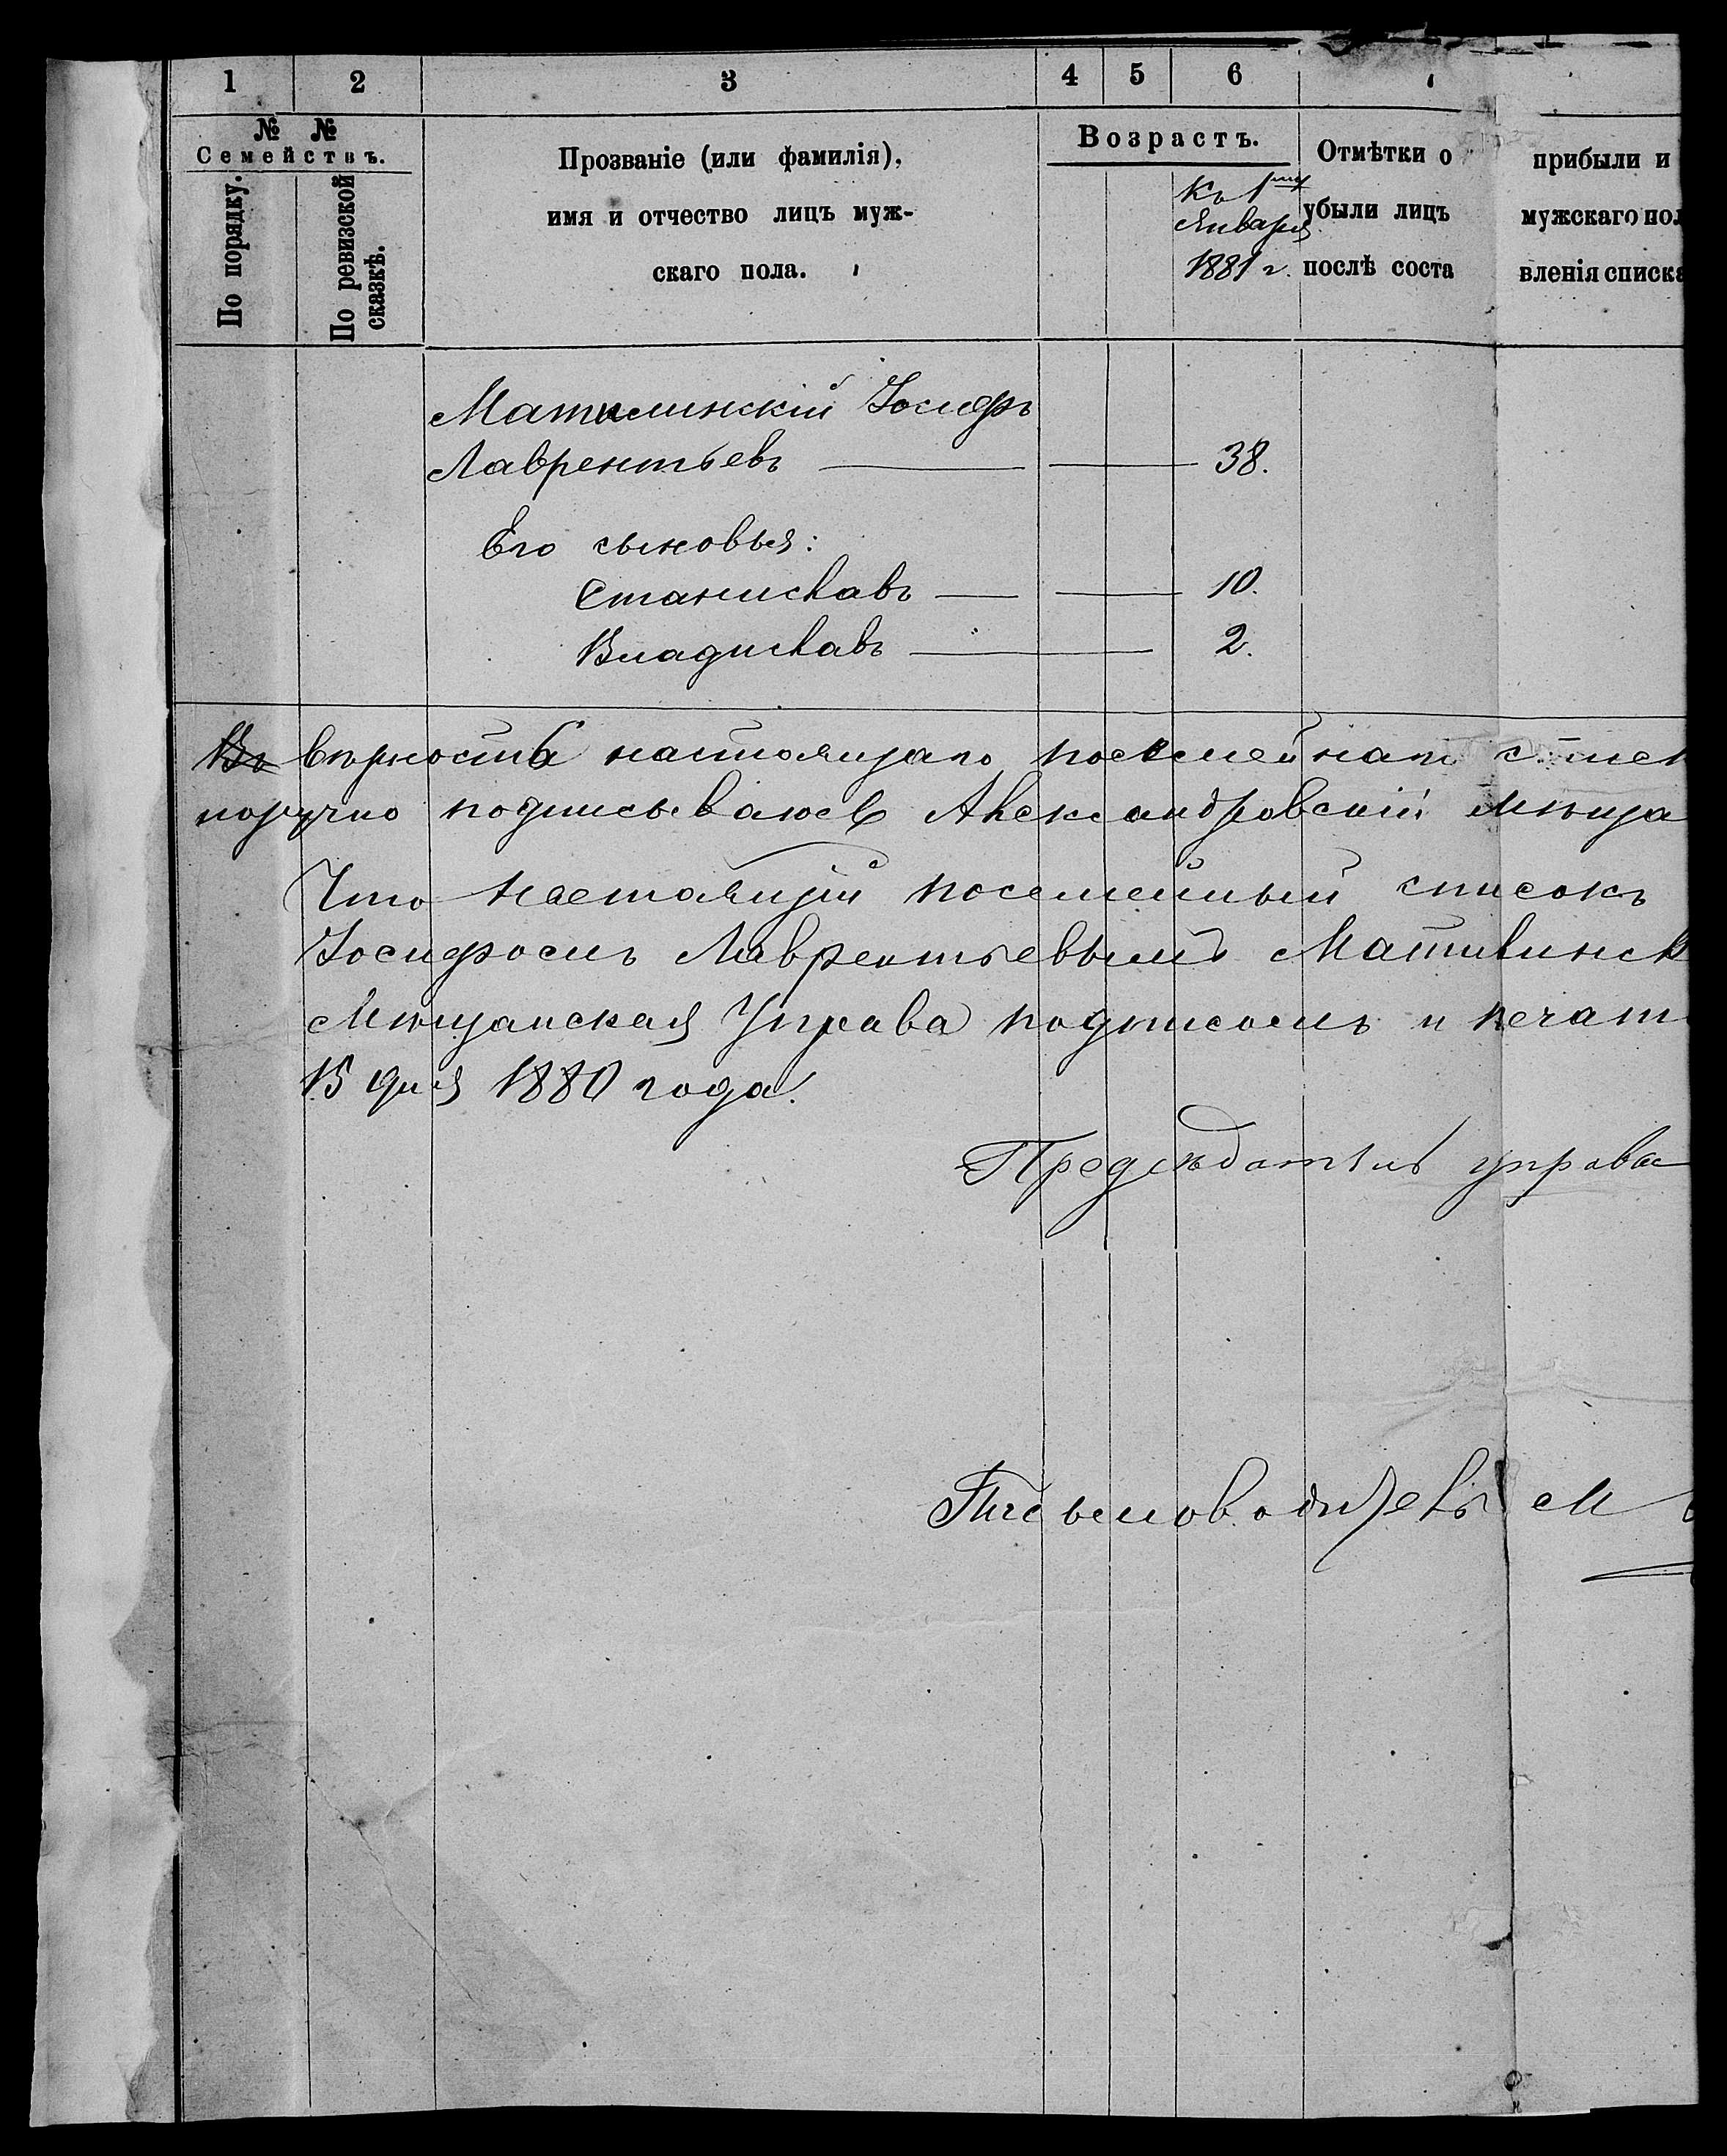 1 2 3 4 5 6
№ №
Семействъ.
По порядку.
По ревизской сказкѣ.
Прозваніе (или фамилія),
имя и отчество лицъ муж-
скаго пола.
Возрастъ.
Къ 1му
Января
1881 г.
Отмѣтки о прибыли и
убыли лицъ мужскаго пол
послѣ соста вленія списка
Матилинскій Іосифъ
Лаврентьевъ 38.
Его сыновья:
Станиславъ 10.
Владиславъ 2.
Въ вѣрности настоящаго посемейнаго
поручно подписываюсь Александровскій мѣща
Что настоящій посемейный списокъ
Іосифомъ Лаврентьевымъ Матилинск
Мѣщанская Управа подписомъ и печат
15 дня 1880 года.
Предсѣдатель управы
Письмоводитель М